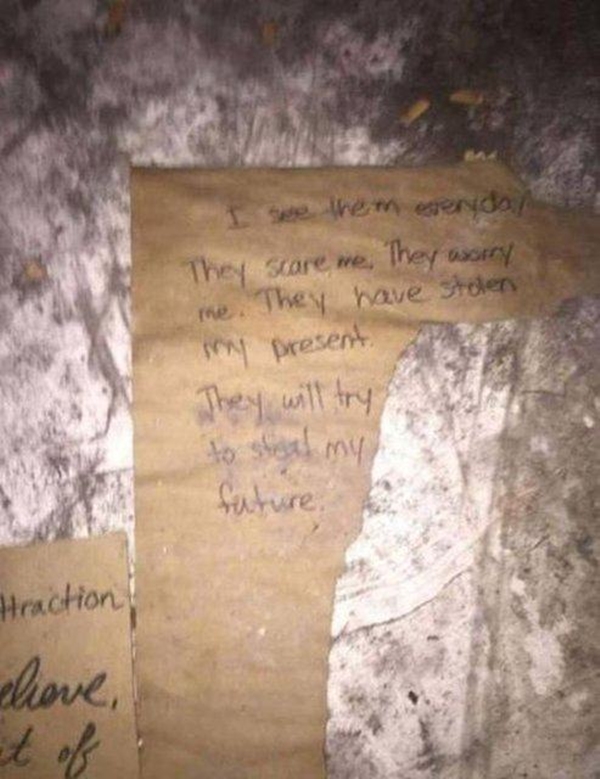 I see them everyday
They scare me. They worry
me. They have stolen
my present.
They will try
to steal my
future.
ttraction
elieve.
t of